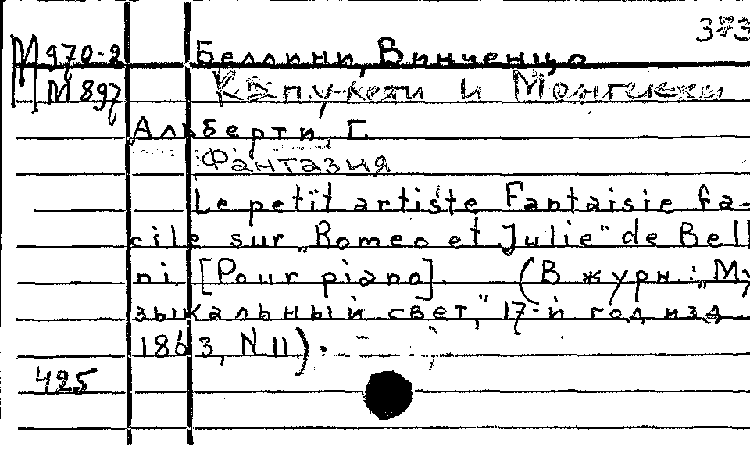 373
М970-2 Беллини, Винченцо
М 897 Капулети и Монтекки
Альберти, Г.
Фантазия
Le petit artiste Fantaisie fa-
cile sur „Romeo et Julie" de Bell
ni [Pour piano]. (В журн.: „Му
зыкальный свет," 17-й год изд
1863, N 11).
425